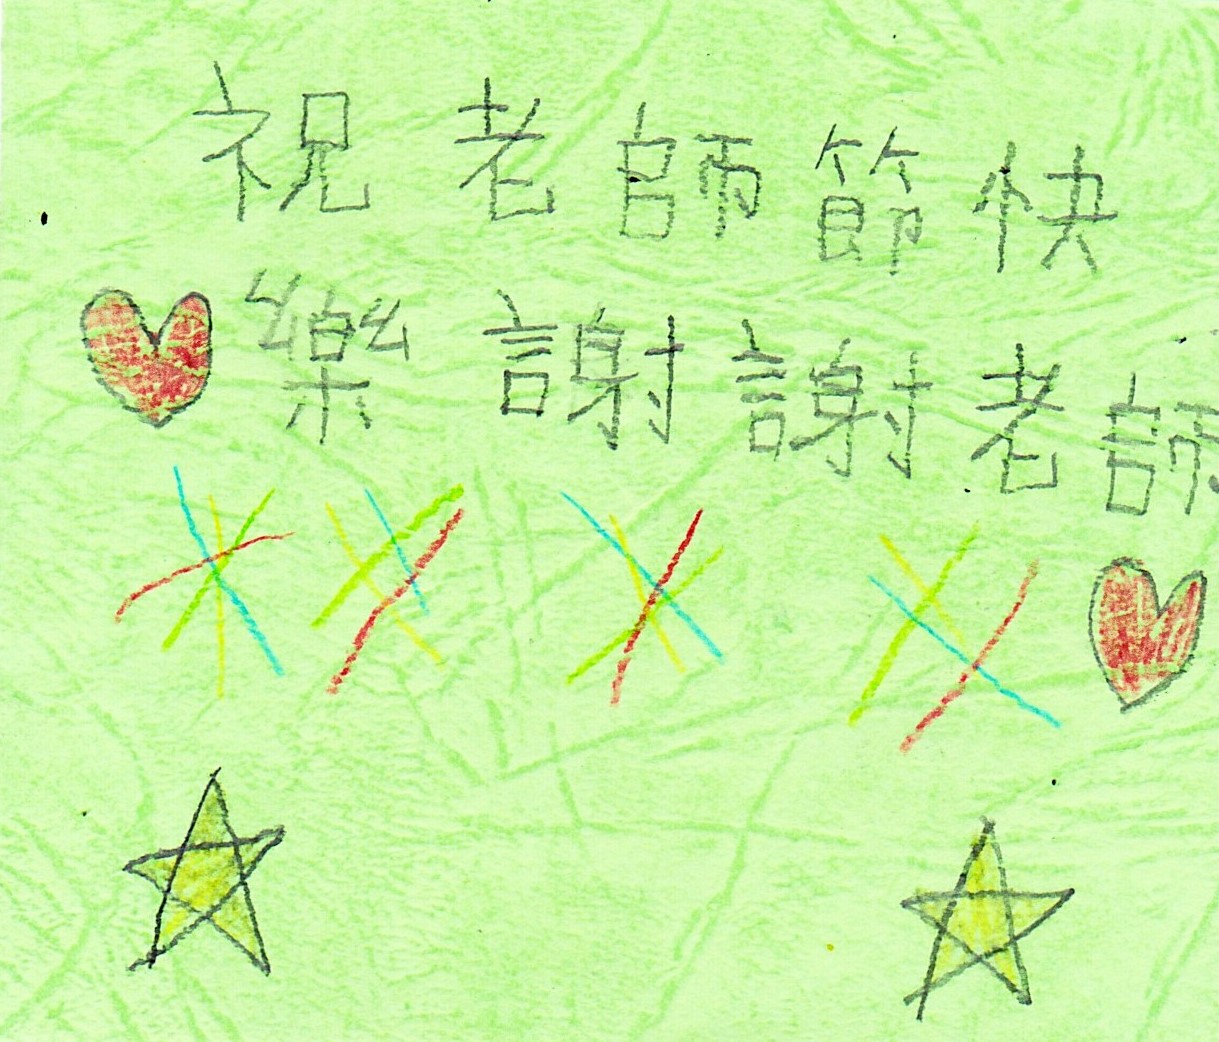 祝老師節快
樂謝謝老師